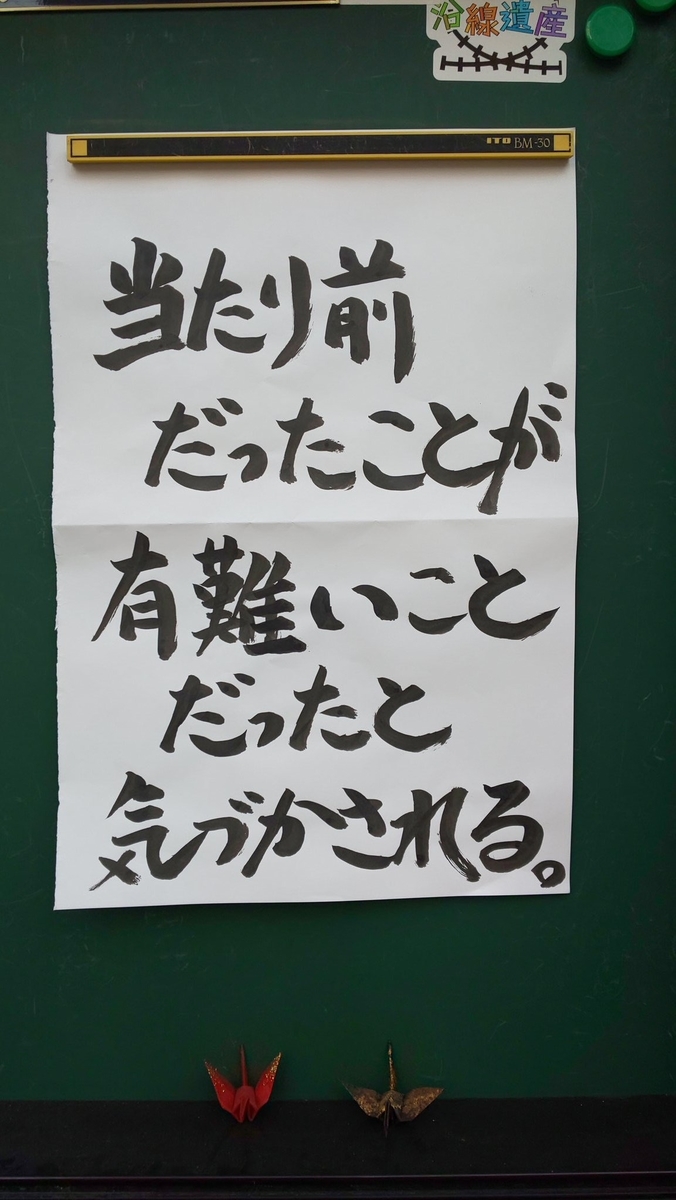 沿線遺産
ITO BM-30
当たり前
だったことが
有難いこと
だったと
気づかされる。